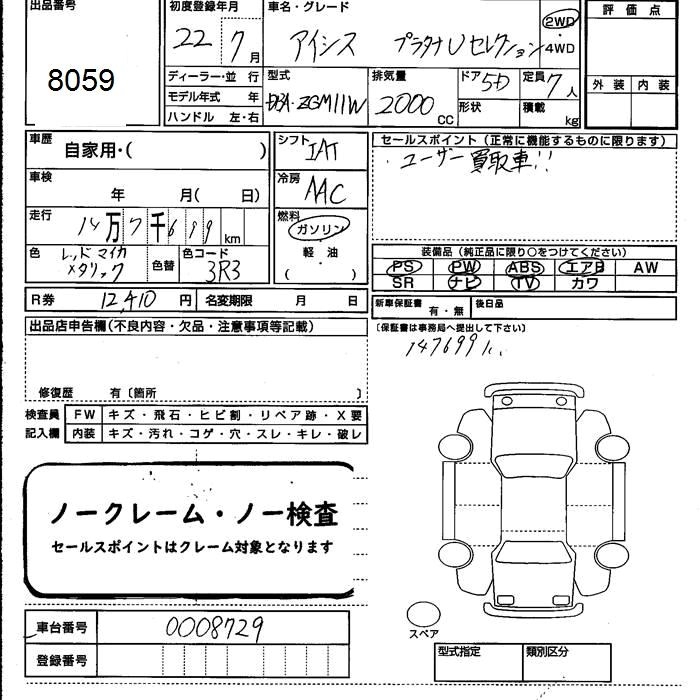 出品番号
8059
初度登録年月
22 7月
車名・グレード
アイシス プラタナUセレクション
2WD
・
4WD
評価点
外装 内装
ディーラー・並行
モデル年式 年
ハンドル 左・右
型式
DBA-ZGM11W
排気量
2000 CC
ドア 5D
形状
定員 7人
積載 kg
車歴
自家用・( )
シフト
IAT
セールスポイント(正常に機能するものに限ります)
ユーザー買取車!!
車検
年 月( 日)
冷房
AAC
走行
14万7千699 km
燃料
ガソリン
軽・油
( )
色
レッドマイカ
メタリック
色替
色コード
3R3
装備品(純正品に限り○をつけてください)
PS PW ABS エアB AW
SR ナビ TV カワ
R券 12,410 円 名変期限 月 日
新車保証書 有・無 後日品
出品店申告欄(不良内容・欠品・注意事項等記載)
〔保証書は事務局へ提出して下さい〕
147699
修復歴 有〔箇所 〕
検査員 FW キズ・飛石・ヒビ割・リペア跡・X要
記入欄 内装 キズ・汚れ・コゲ・穴・スレ・キレ・破レ
ノークレーム・ノー検査
セールスポイントはクレーム対象となります
車台番号 0008729
登録番号
スペア
型式指定 類別区分